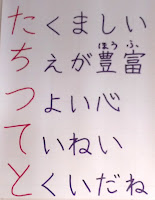 たくましい
ちえが豊富
つよい心
ていねい
とくいだね